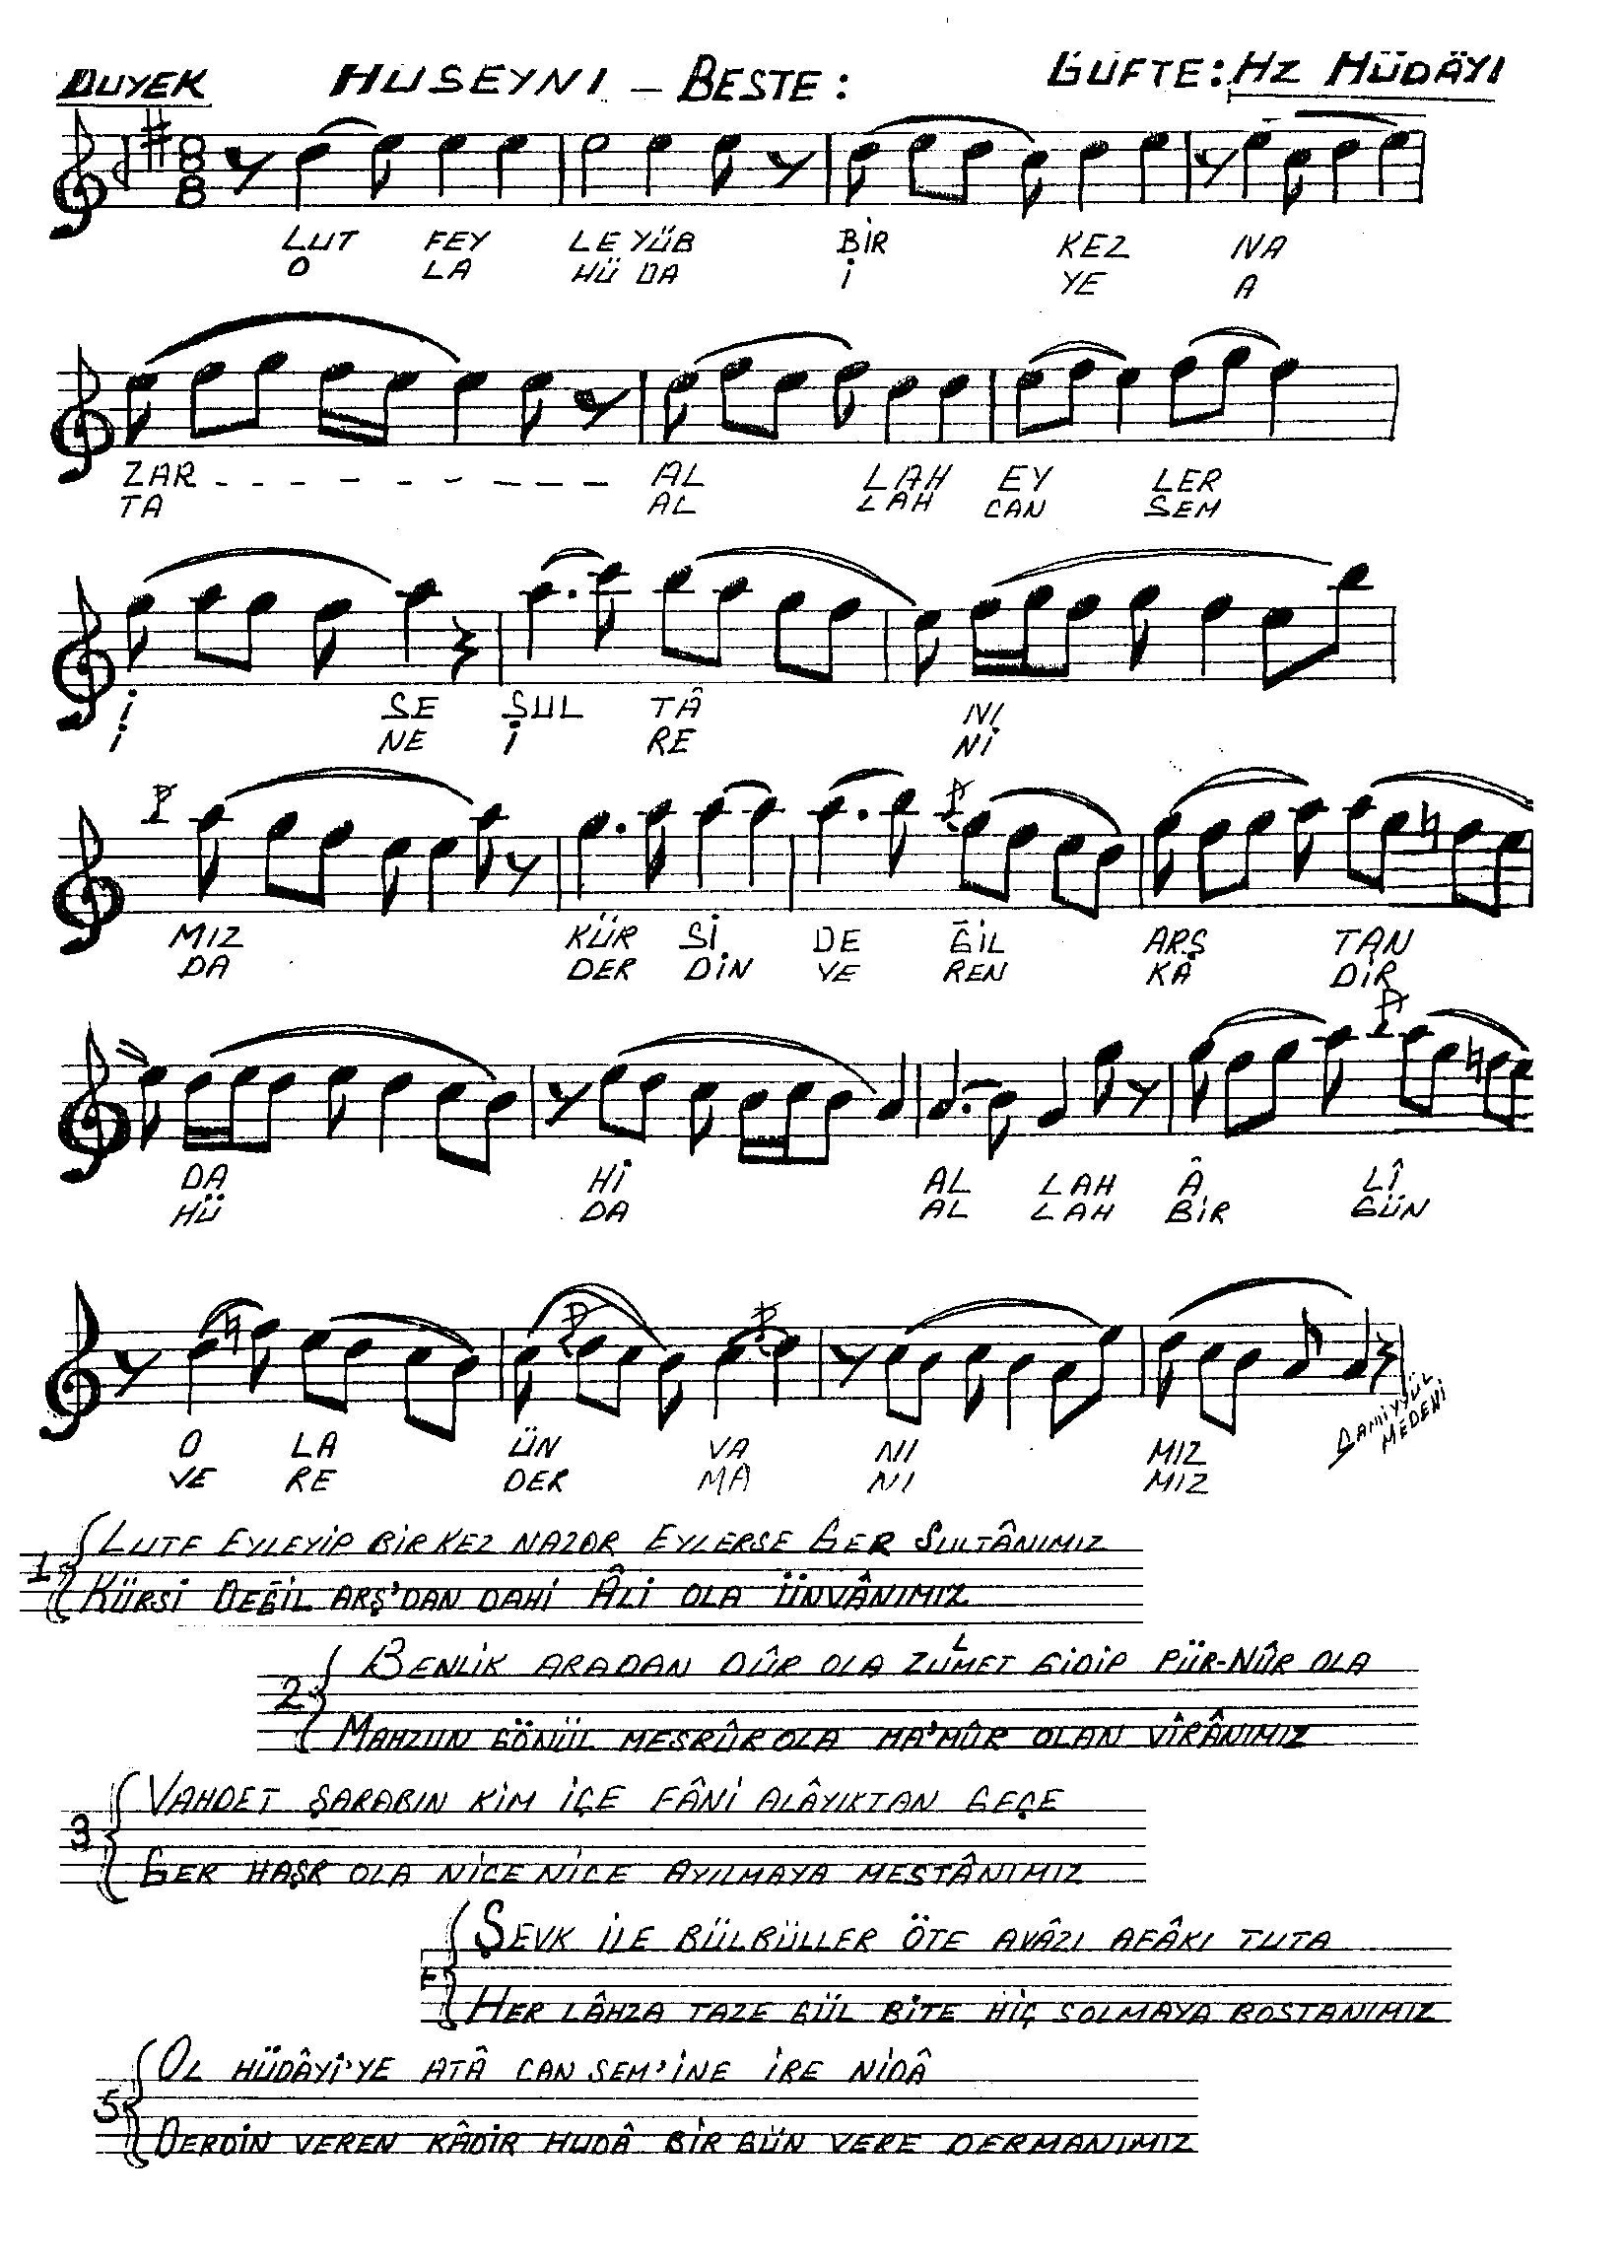 DUYEK HUSEYNI – BESTE: GÜFTE: HZ HÜDÂYI
LUT FEY LE YÜB BİR KEZ NA
O LA HÜ DA İ YE A
ZAR - - - - - - - - - AL LAH EY LER
TA AL LAH CAN SEM
İ SE ŞUL TÂ NI
İ NE İ RE Nİ
MIZ KÜR Sİ DE ĞİL ARŞ TAN
DA DER DİN VE REN KÂ DİR
DA Hİ AL LAH Â LÎ
HÜ DA AL LAH BİR GÜN
O LA ÜN VA NI MIZ
VE RE DER MA NI MIZ
MEDENİ
1 LUTF EYLEYİP BİR KEZ NAZAR EYLERSE GER ŞULTÂNIMIZ
KÜRSİ DEĞİL ARŞ'DAN DAHİ ÂLİ OLA ÜNVÂNIMIZ
2 BENLİK ARADAN DÛR OLA ZULMET GİDİP PÜR-NÛR OLA
MAHZUN GÖNÜL MESRÛR OLA MA'MÛR OLAN VÎRÂNIMIZ
3 VAHDET ŞARABIN KİM İÇE FÂNİ ALÂYIKTAN GEÇE
GER HAŞR OLA NİCE NİCE AYILMAYA MESTÂNIMIZ
ŞEVK İLE BÜLBÜLLER ÖTE AVÂZI AFÂKI TUTA
HER LÂHZA TAZE GÜL BİTE HİÇ SOLMAYA BOSTANIMIZ
5 OL HÜDÂYÎ'YE ATÂ CAN SEM'İNE İRE NİDÂ
DERDİN VEREN KÂDİR HUDÂ BİR GÜN VERE DERMANIMIZ